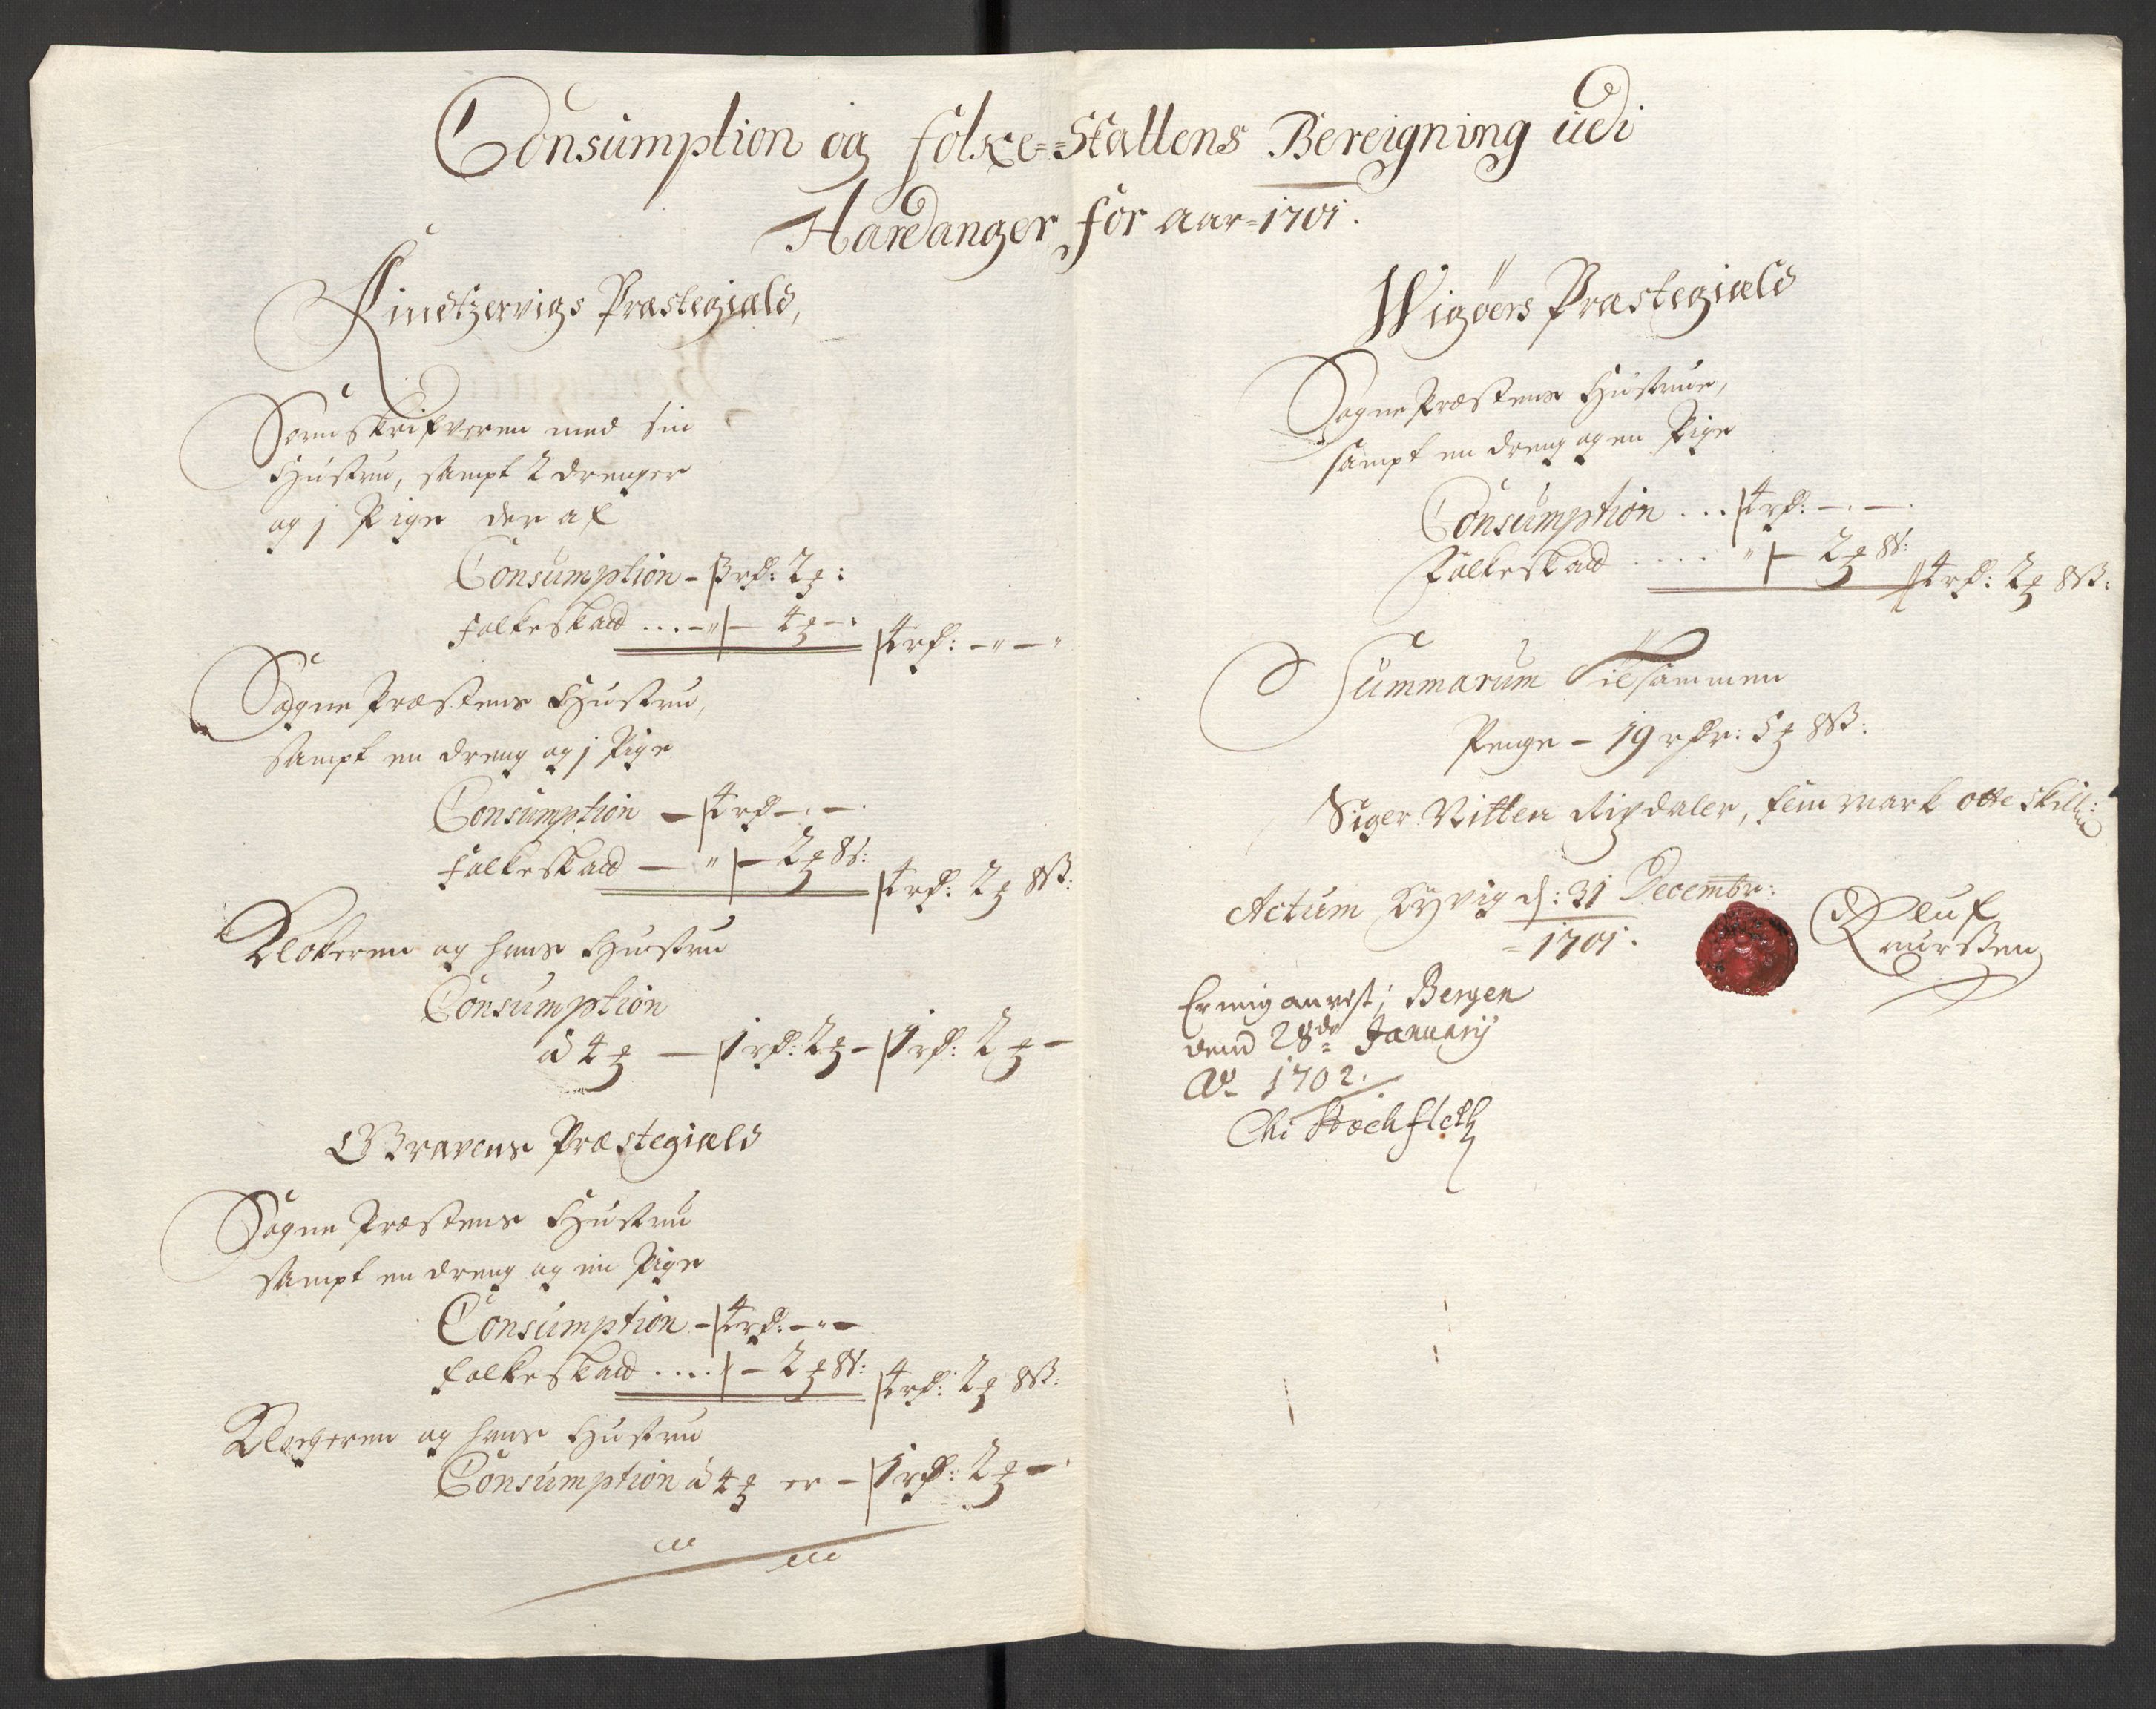 Consumption og folke-Skattens Bereigning udi
Hardanger for aar=1701.
Kindtzervigs Præstegiæld,
Sorenskrifveren med sin
Hustru, sampt 2 drenger
og 1 Pige der af
Consumption - 3 rd: 2 ꝥ:
Folkeskatt ... - " - 4 ꝥ - .
4 rd: - " - "
Sogne Præstens Hustru,
sampt en dreng og 1 Pige
Consumption - 4 rd - . - .
Folkeskatt - " - 2 ꝥ 8 s:
4 rd: 2 ꝥ 8 ß:
Klokeren og hans Hustru
Consumption
à 4 ꝥ - 1 rd: 2 ꝥ - 1 rd: 2 ꝥ -
Gravens Præstegiæld
Sogne Præstens Hustru
sampt en dreng og en Pige
Consumption - 4 rd: - " -
Folkeskatt .... - 2 ꝥ 8 s:
4 rd: 2 ꝥ 8 ß:
Klocheren og hans Hustru
Consumption à 4 ꝥ er - 1 rd: 2 ꝥ - .
Wigöers Præstegiæld
Sogne Præstens Hustrue,
sampt en dreng og en Pige
Consumption ... 4 rd: - . - .
Folkeskatt .... " - 2 ꝥ 8 s:
4 rd: 2 ꝥ 8 ß:
Summarum Tilsammen
Penge - 19 rdr: 5 ꝥ 8 ß:
Siger Nitten Rixdaler, fem mark otte skill:
Actum Kyvig d: 31 Decembr:
=1701.
Oluf
Laurssen
Er mig anvist; Bergen
dend 28de January
Ao 1702.
Chr Stockfleth